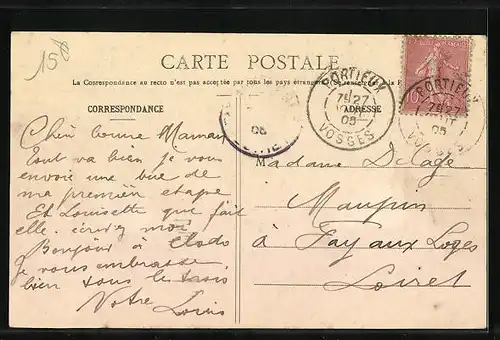 15
CARTE POSTALE
La Correspondance au recto n'est pas acceptée par tous les pays étrangers
CORRESPONDANCE
ADRESSE
PORTIEUX
7H 27
05
VOSGES
PORTIEUX
7H 27
05
VOSGES
05
10
Chère bonne Maman
Tout va bien je vous
envoie une vue de
ma première étape
Et Louisette que fait
elle. écrivez moi
Bonjour à Clodo
Je vous embrasse
bien tous les trois
Votre Louis
Madame Delage
Maupin
à Fay aux Loges
Loiret